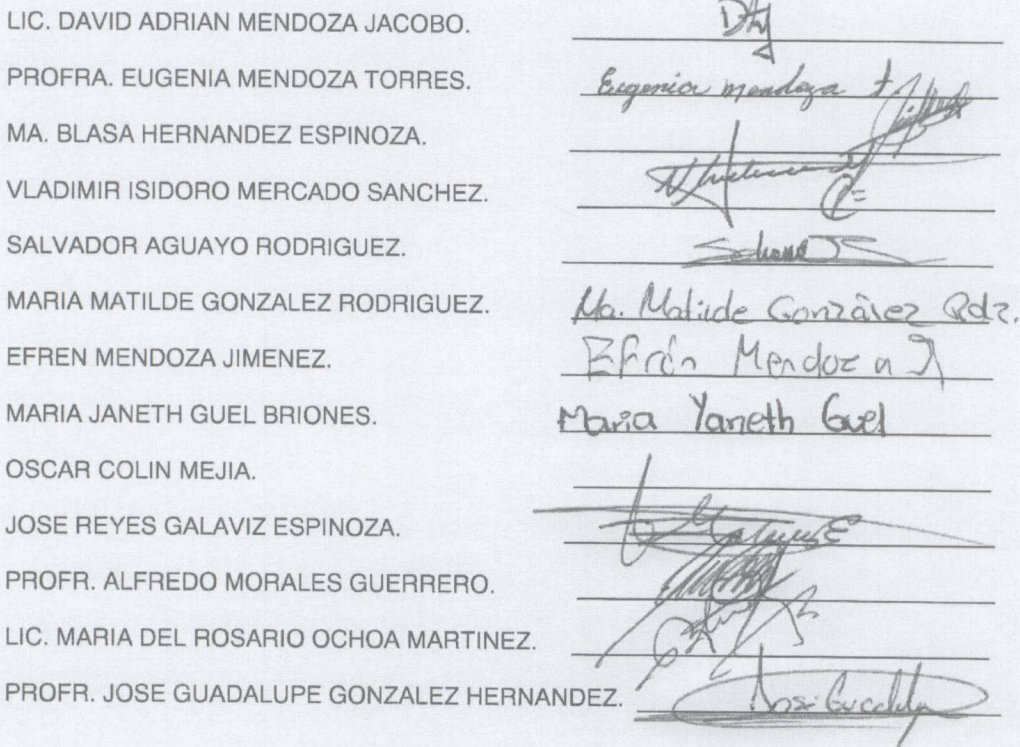 LIC. DAVID ADRIAN MENDOZA JACOBO.
PROFRA. EUGENIA MENDOZA TORRES. Eugenia mendoza t
MA. BLASA HERNANDEZ ESPINOZA.
VLADIMIR ISIDORO MERCADO SANCHEZ.
SALVADOR AGUAYO RODRIGUEZ.
MARIA MATILDE GONZALEZ RODRIGUEZ. Ma. Matilde González Rdz.
EFREN MENDOZA JIMENEZ. Efrén Mendoza J
MARIA JANETH GUEL BRIONES. Maria Yaneth Guel
OSCAR COLIN MEJIA.
JOSE REYES GALAVIZ ESPINOZA.
PROFR. ALFREDO MORALES GUERRERO.
LIC. MARIA DEL ROSARIO OCHOA MARTINEZ.
PROFR. JOSE GUADALUPE GONZALEZ HERNANDEZ.